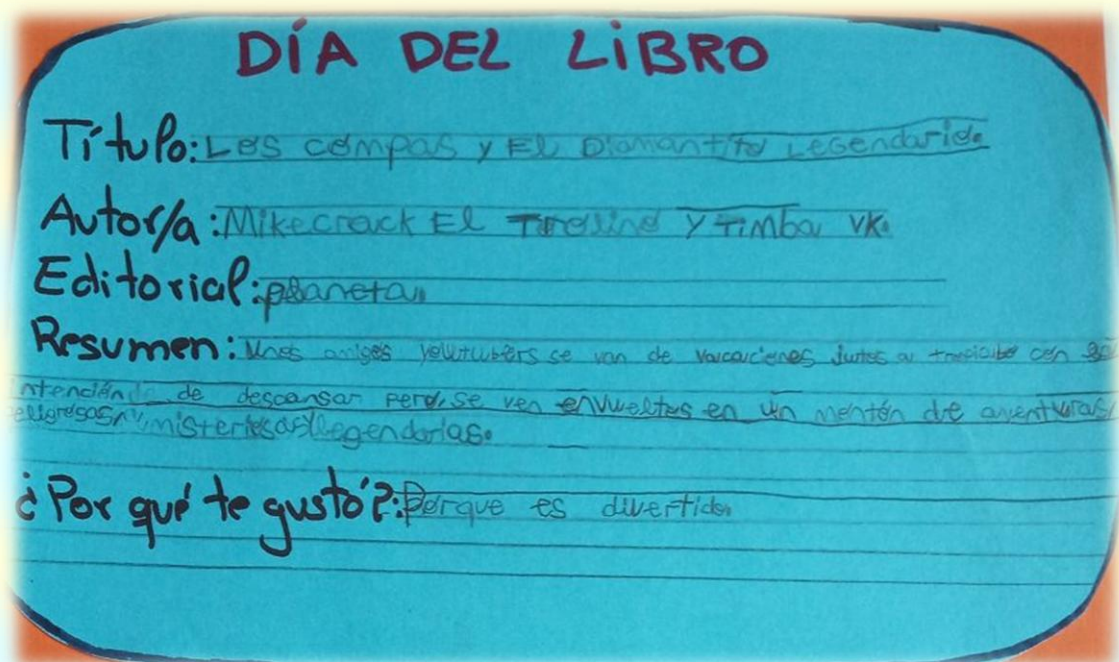 DÍA DEL LIBRO
Título: Los compas y El Diamantito Legendario.
Autor/a: Mikecrack El Trollino Y Timba VK.
Editorial: planeta.
Resumen: Unos amigos youtubers se van de vacaciones juntos a tropicubo con
intención de descansar pero, se ven envueltos en un montón de aventuras
peligrosas, misteriosas, legendarias.
¿Por qué te gustó?: Porque es divertido.